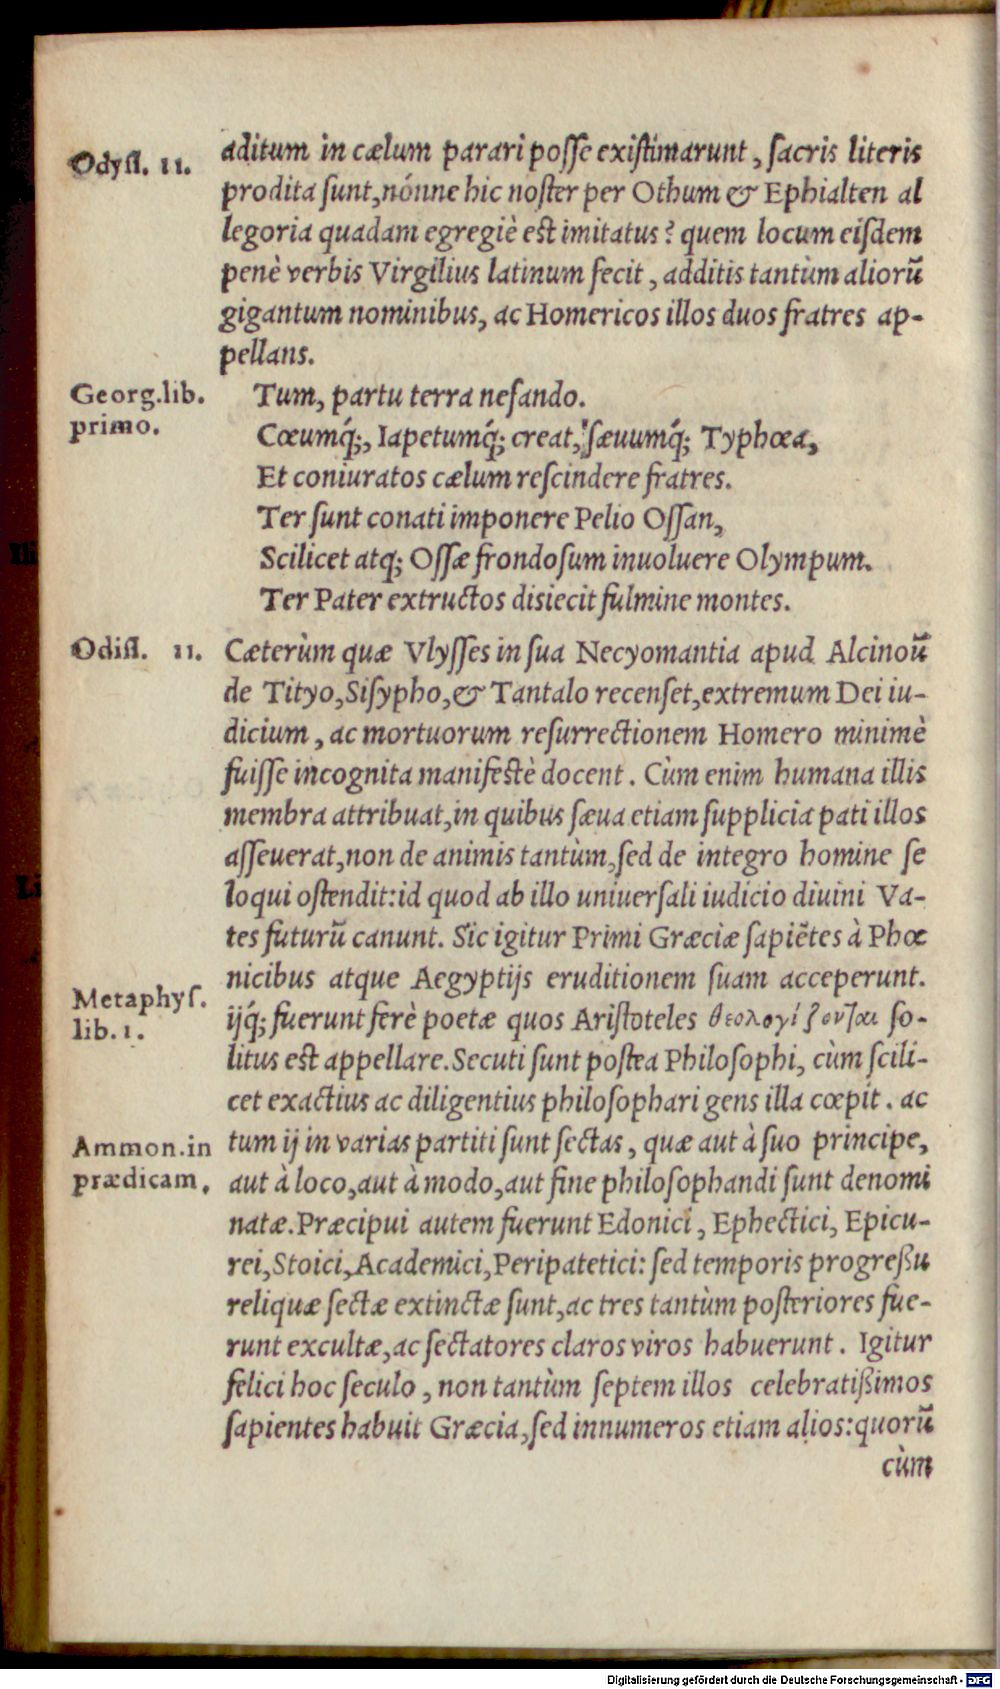 Odyſſ. 11.
aditum in cælum parari poſſe exiſtimarunt, ſacris literis
prodita ſunt, nónne hic noſter per Othum & Ephialten al
legoria quadam egregiè eſt imitatus? quem locum eiſdem
penè verbis Virgilius latinum fecit, additis tantùm aliorū
gigantum nominibus, ac Homericos illos duos fratres ap-
pellans.
Georg. lib.
primo.
Tum, partu terra nefando.
Cœumq́;, Iapetumq́; creat, ſæuumq́; Typhœa,
Et coniuratos cælum reſcindere fratres.
Ter ſunt conati imponere Pelio Oſſan,
Scilicet atq; Oſſæ frondoſum inuoluere Olympum.
Ter Pater extructos disiecit fulmine montes.
Odiſſ. 11.
Cæterùm quæ Vlyſſes in ſua Necyomantia apud Alcinoū
de Tityo, Siſypho, & Tantalo recenſet, extremum Dei iu-
dicium, ac mortuorum reſurrectionem Homero minimè
fuiſſe incognita manifeſtè docent. Cùm enim humana illis
membra attribuat, in quibus ſæua etiam ſupplicia pati illos
aſſeuerat, non de animis tantùm, ſed de integro homine ſe
loqui oſtendit: id quod ab illo uniuerſali iudicio diuini Va-
tes futurū canunt. Sic igitur Primi Græciæ ſapiētes à Phœ
nicibus atque Aegyptijs eruditionem ſuam acceperunt.
Metaphyſ.
lib. 1.
ijq́; fuerunt ferè poetæ quos Ariſtoteles θεολογίζονται ſo-
litus eſt appellare. Secuti ſunt poſtea Philoſophi, cùm ſcili-
cet exactius ac diligentius philoſophari gens illa cœpit. ac
Ammon. in
prædicam.
tum ij in varias partiti ſunt ſectas, quæ aut à ſuo principe,
aut à loco, aut à modo, aut fine philoſophandi ſunt denomi
natæ. Præcipui autem fuerunt Edonici, Ephectici, Epicu-
rei, Stoici, Academici, Peripatetici: ſed temporis progreßu
reliquæ ſectæ extinctæ ſunt, ac tres tantùm poſteriores fue-
runt excultæ, ac ſectatores claros viros habuerunt. Igitur
felici hoc ſeculo, non tantùm ſeptem illos celebratißimos
ſapientes habuit Græcia, ſed innumeros etiam alios: quorū
cùm
Digitalisierung gefördert durch die Deutsche Forschungsgemeinschaft - DFG